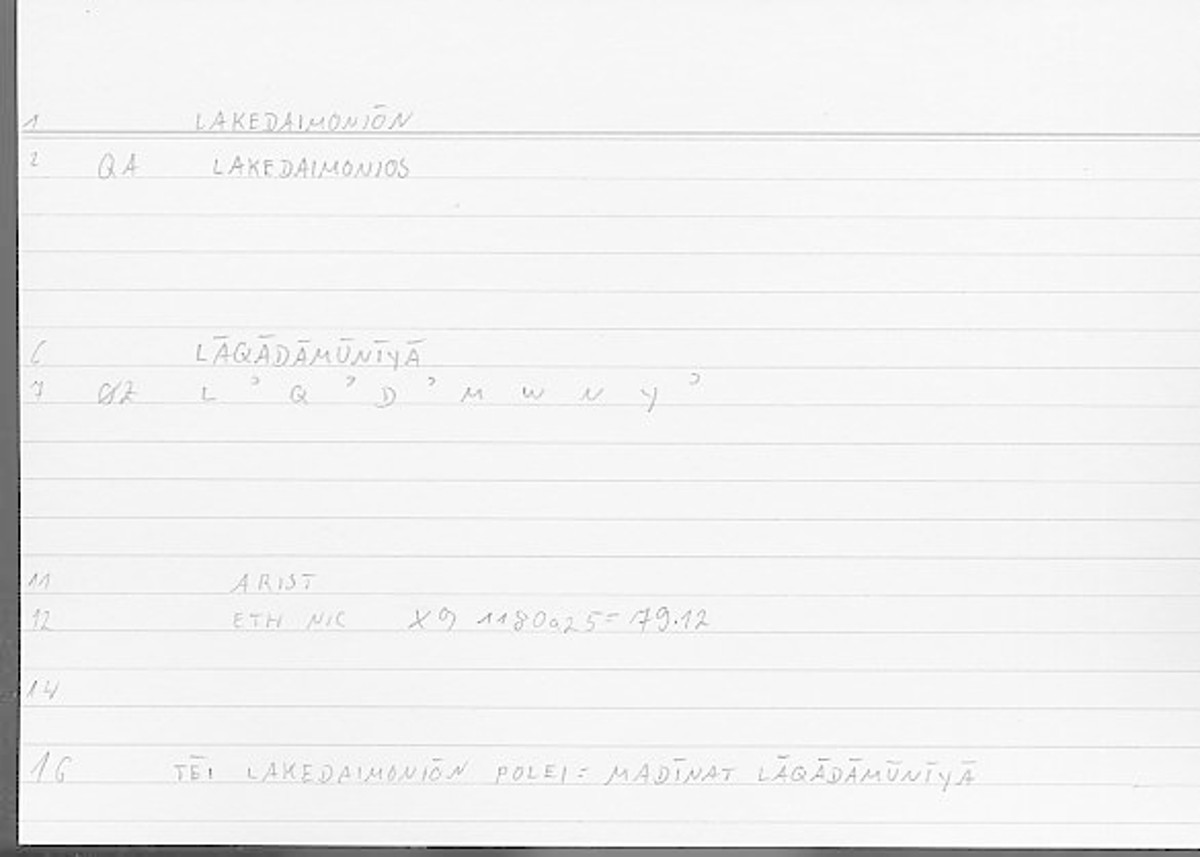 1 LAKEDAIMONIŌN
2 QA LAKEDAIMONIOS
6 LĀQĀDĀMŪNĪYĀ
7 ØZ L ʾ Q ʾ D ʾ M W N Y ʾ
11 ARIST
12 ETH NIC X9 1180a25=79.12
14
16 TĒI LAKEDAIMONIŌN POLEI= MADĪNAT LĀQĀDĀMŪNĪYĀ